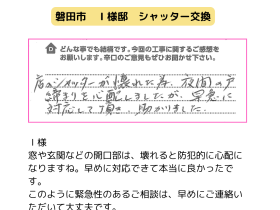 磐田市　Ｉ様邸　シャッター交換
どんな事でも結構です。今回の工事に関するご感想を
お願いします。辛口のご意見もぜひお聞かせ下さい。
店のシャッターが壊れた為、夜間の戸
締まりを心配しましたが、早急に
対応して頂き、助かりました。
Ｉ様
窓や玄関などの開口部は、壊れると防犯的に心配に
なりますね。早めに対応できて本当に良かったで
す。
このように緊急性のあるご相談は、早めにご連絡い
ただいて大丈夫です。